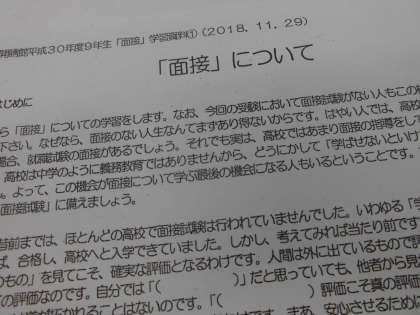 平成30年度9年生「面接」学習資料①(2018.11.29)
「面接」について
はじめに
ら「面接」についての学習をします。なお、今回の受験において面接試験がない人もこの
下さい。なぜなら、面接のない人生なんてまずあり得ないからです。はやい人では、高校
場合、就職試験の面接があるでしょう。それでも実は、高校ではあまり面接の指導をして
。高校は中学のように義務教育ではありませんから、どうにかして「学ばせないという
。よって、この機会が面接について学ぶ最後の機会になる人もいるということです。
面接試験」に備えましょう。
昔前までは、ほとんどの高校で面接試験は行われていませんでした。いわゆる「学
ば、合格し、高校へと入学できていました。しかし、考えてみれば当たり前です
のもの」を見てこそ、確実な評価となるわけです。人間は外に出ているもので
の評価なのです。自分では「( )」だと思っていても、他者から見
ることはないのです。「( )評価こそ真の評価
わけです。まあ、安心させるため